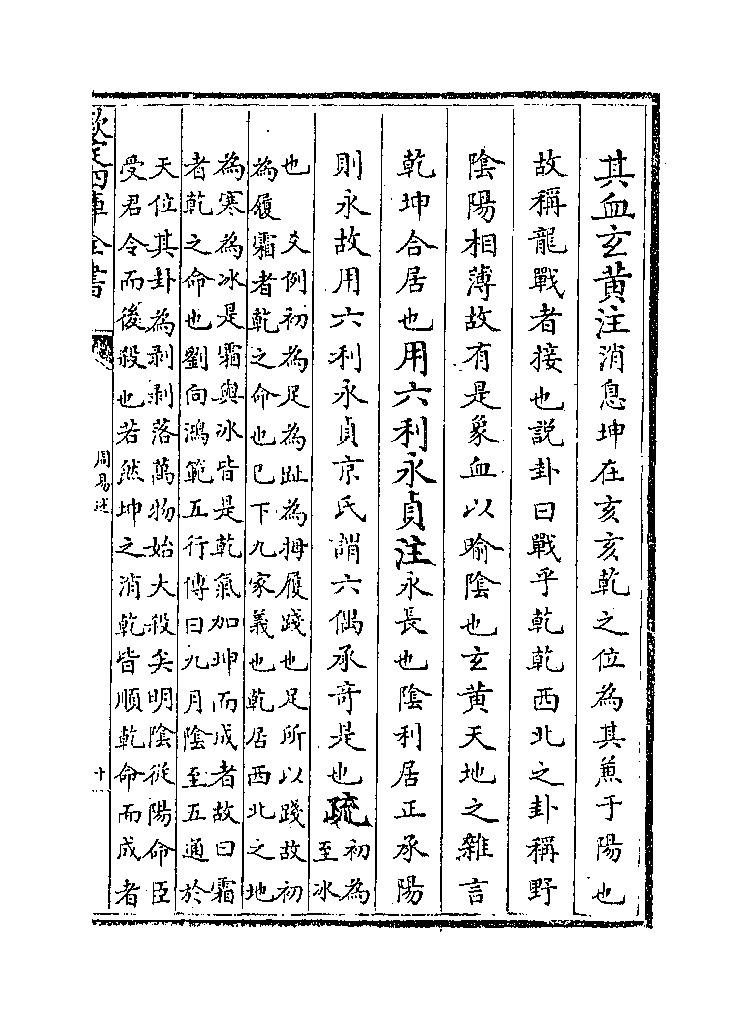 其血玄黄注消息坤在亥亥乾之位為其蒹于陽也
故稱龍戰者接也說卦曰戰乎乾乾西北之卦稱野
陰陽相薄故有是象血以喻陰也玄黄天地之雜言
乾坤合居也用六利永貞注永長也陰利居正承陽
則永故用六利永貞京氏謂六偶承竒是也疏初為
至氷
也　爻例初為足為趾為拇履踐也足所以踐故初
為履霜者乾之命也已下九家義也乾居西北之地
為寒為冰是霜與冰皆是乾氣加坤而成者故曰霜
者乾之命也劉向鴻範五行傳曰九月陰至五通於
天位其卦為剥剥落萬物始大殺矣明陰從陽命臣
受君令而後殺也若然坤之消乾皆順乾命而成者
欽定四庫全書
周易述
十